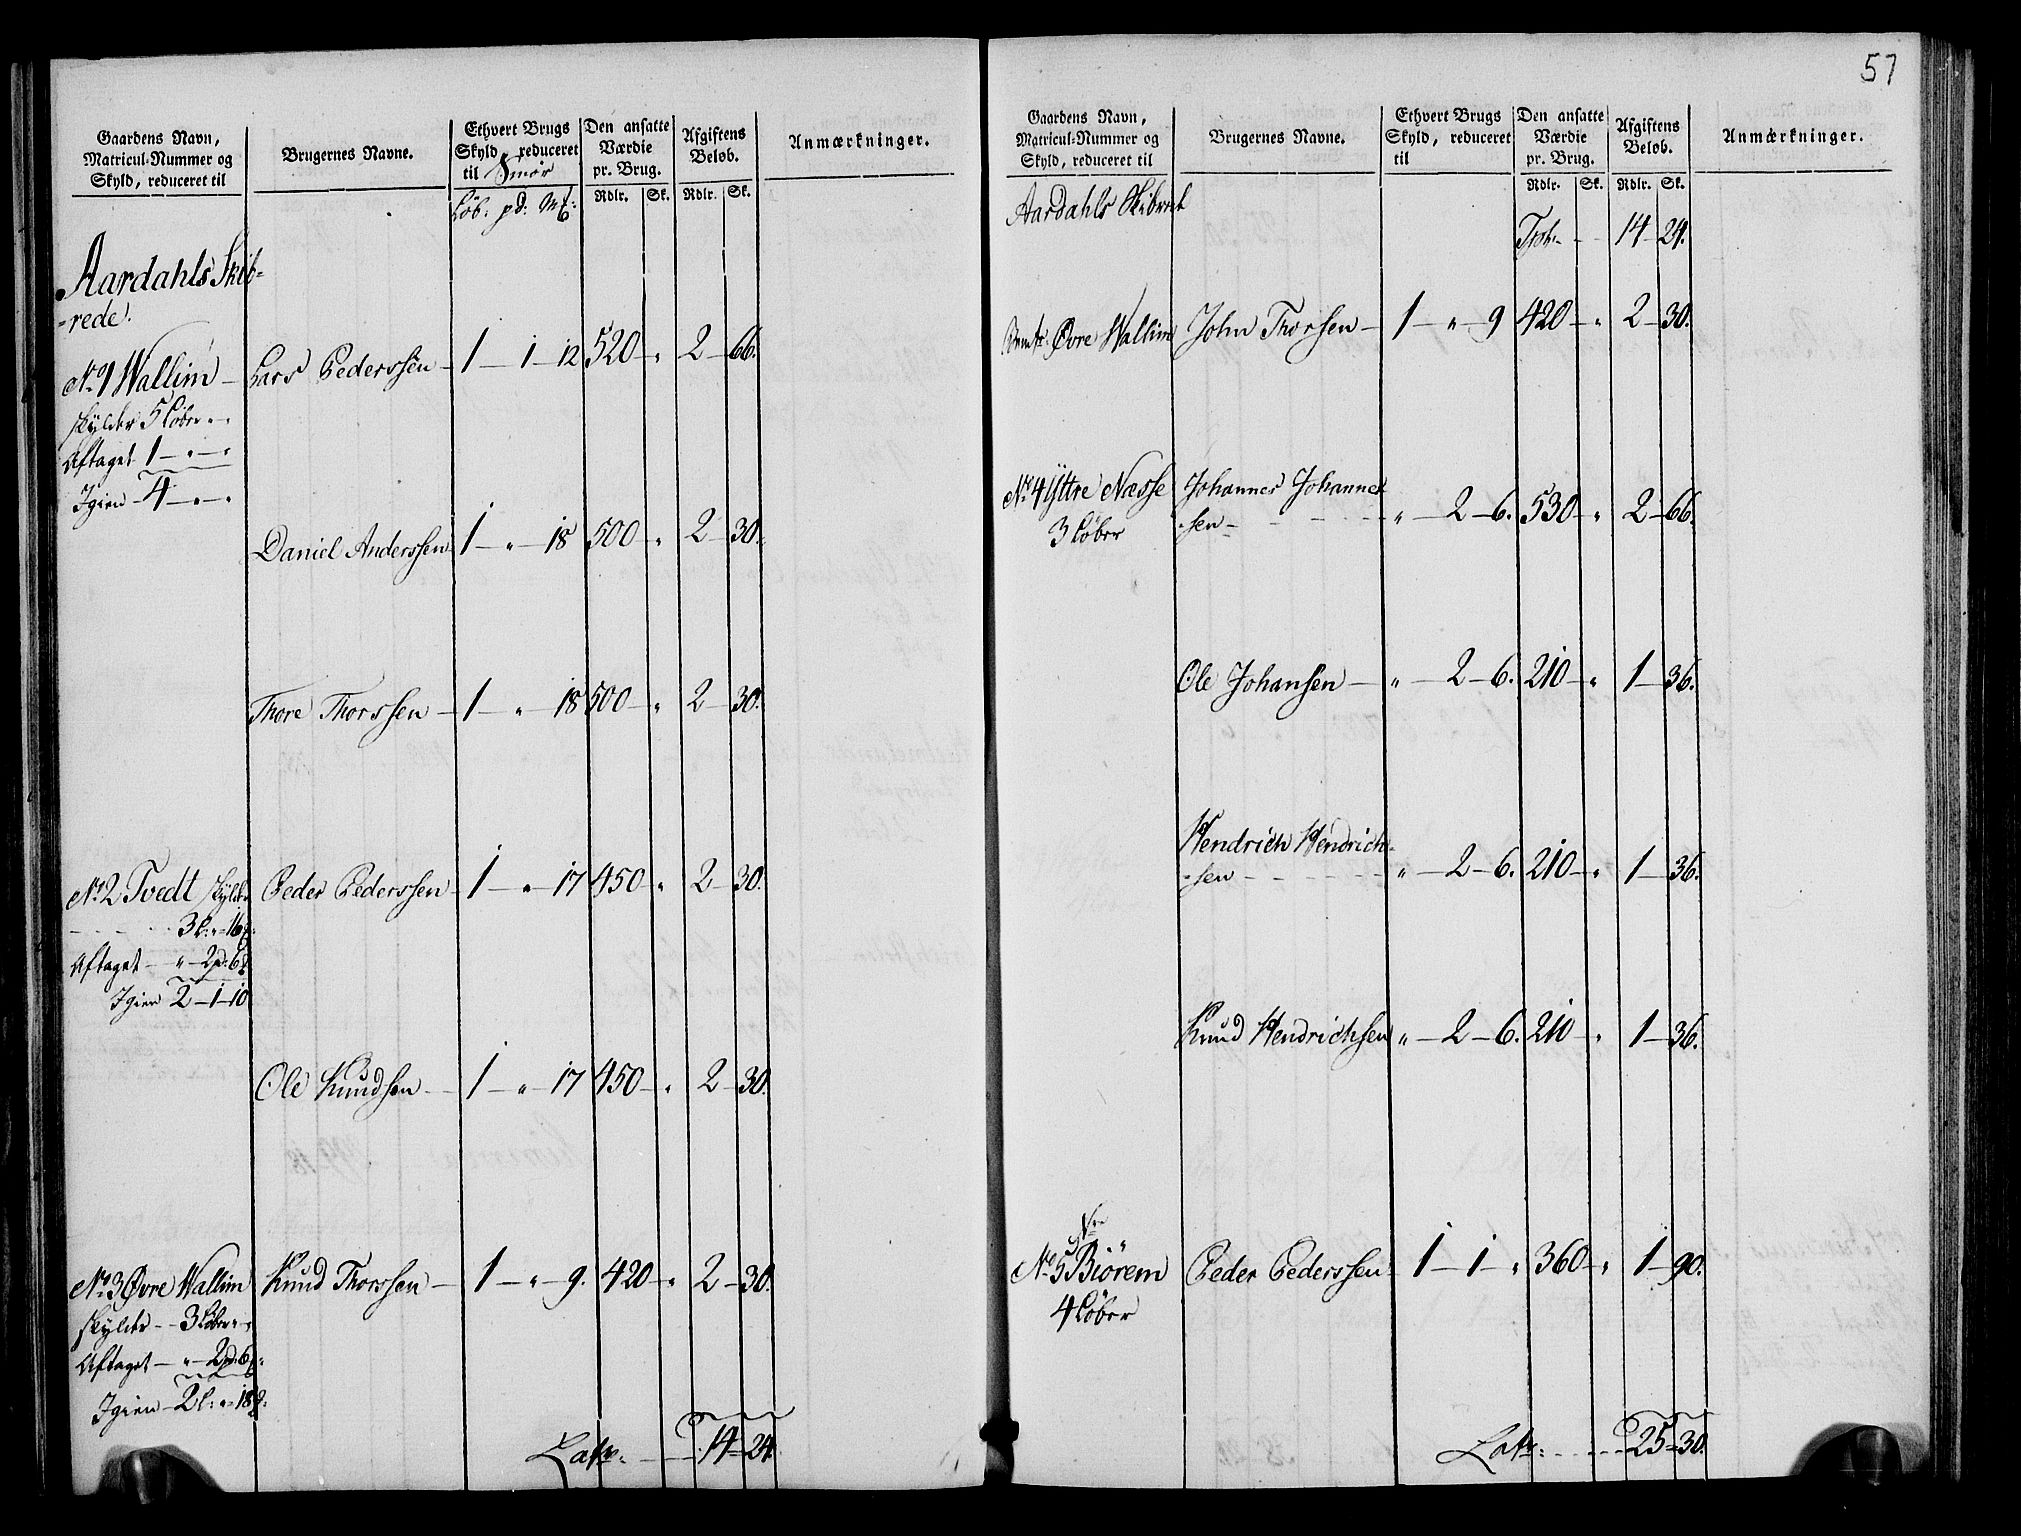 Gaardens Navn,
Matricul-Nummer og
Skyld, reduceret til
Brugernes Navne.
Ethvert Brugs
Skyld, reduceret
til Smør
Den ansatte
Værdie
pr. Brug.
Afgiftens
Beløb.
Anmærkninger.
Løb: pd: Mk:
Rdlr. Sk. Rdlr. Sk.
Aardahls Skib-
-rede.
No 1 Wallim — Lars Pederssen — 1 — 1 — 12 520 — " 2 — 66.
skylder 5 Løber " — "
Aftaget 1 — " — "
Igien — 4 — " — "
Daniel Anderssen 1 — " — 18 500 — " 2 — 30.
Thore Thorssen — 1 — " — 18 500 — " 2 — 30.
No 2 Tvedt skylder Peder Pederssen — 1 — " — 17 450 — " 2 — 30.
3 l: " 16
Aftaget — " — 2 pd: 6
Igien 2 — 1 — 10
Ole Knudsen — 1 — " — 17 450 — " 2 — 30.
No 3 Øvre Wallim Knud Thorssen — 1 — " — 9. 420 — " 2 — 30.
skylder — 3 Løber " — "
Aftaget — " — 2 pd: 6
Igien — 2 l: " — 18
Latr: — 14 — 24.
57
Gaardens Navn,
Matricul-Nummer og
Skyld, reduceret til
Brugernes Navne.
Ethvert Brugs
Skyld, reduceret
til
Den ansatte
Værdie
pr. Brug.
Afgiftens
Beløb.
Anmærkninger.
Rdlr. Sk. Rdlr. Sk.
Aardahls Skibred
Trsp: — 14 — 24.
Øvre Wallim John Thorsen — 1 — " — 9 420 — " 2 — 30.
No 4 Yttre Næsse Johannes Johannes
3 Løber -sen — " — 2 — 6. 530 — " 2 — 66.
Ole Johansen — " — 2 — 6. 210 — " 1 — 36.
Hendrich Hendrich-
-sen — " — 2 — 6. 210 — " 1 — 36.
Knud Hendrichsen " — 2 — 6. 210 — " 1 — 36.
No 5 Biörem Peder Pederssen 1 — 1 — " 360 — " 1 — 90.
4 Løber
Latr: — 25 — 30.